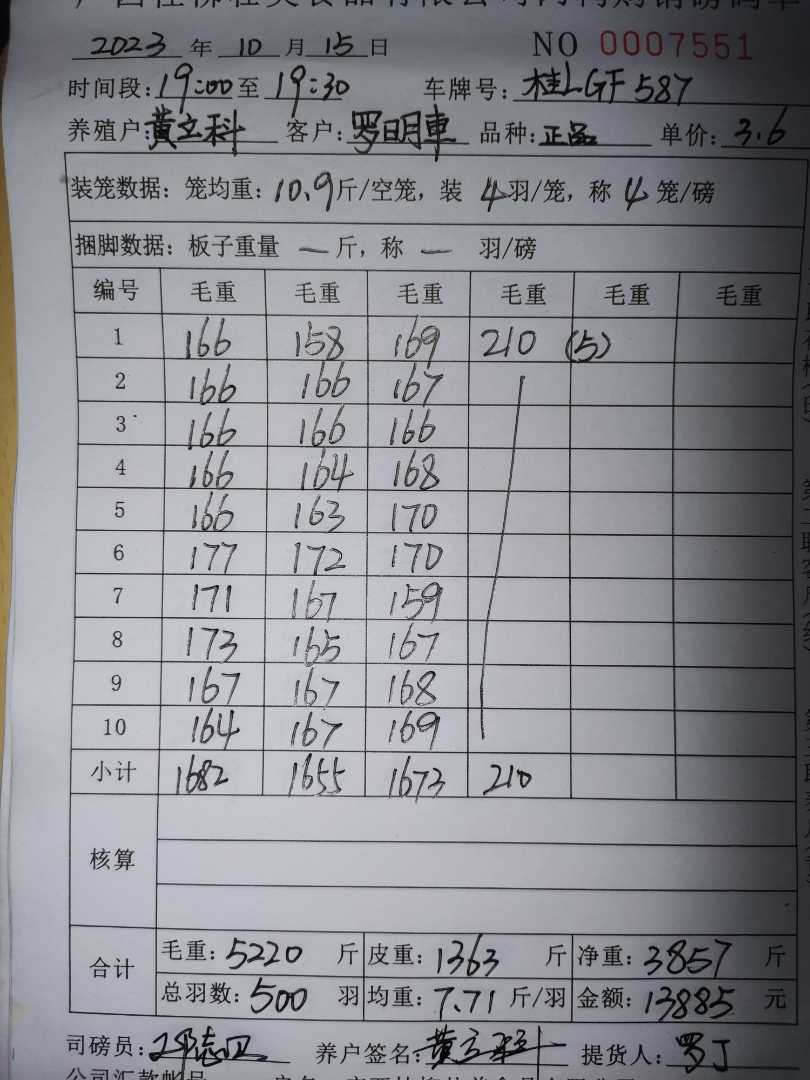 2023 年 10 月 15 日 NO 0007551
时间段: 19:00 至 19:30 车牌号: 桂LGF587
养殖户: 黄立科 客户: 罗明車 品种: 正品 单价: 3.6
装笼数据: 笼均重: 10.9 斤/空笼, 装 4 羽/笼, 称 4 笼/磅
捆脚数据: 板子重量 — 斤, 称 — 羽/磅
编号 毛重 毛重 毛重 毛重 毛重 毛重
1 166 158 169 210 (5)
2 166 166 167
3 166 166 166
4 166 164 168
5 166 163 170
6 177 172 170
7 171 167 159
8 173 165 167
9 167 167 168
10 164 167 169
小计 1682 1655 1673 210
核算
合计 毛重: 5220 斤 皮重: 1363 斤 净重: 3857 斤
总羽数: 500 羽 均重: 7.71 斤/羽 金额: 13885 元
司磅员: 养户签名: 黄立科 提货人: 罗丁